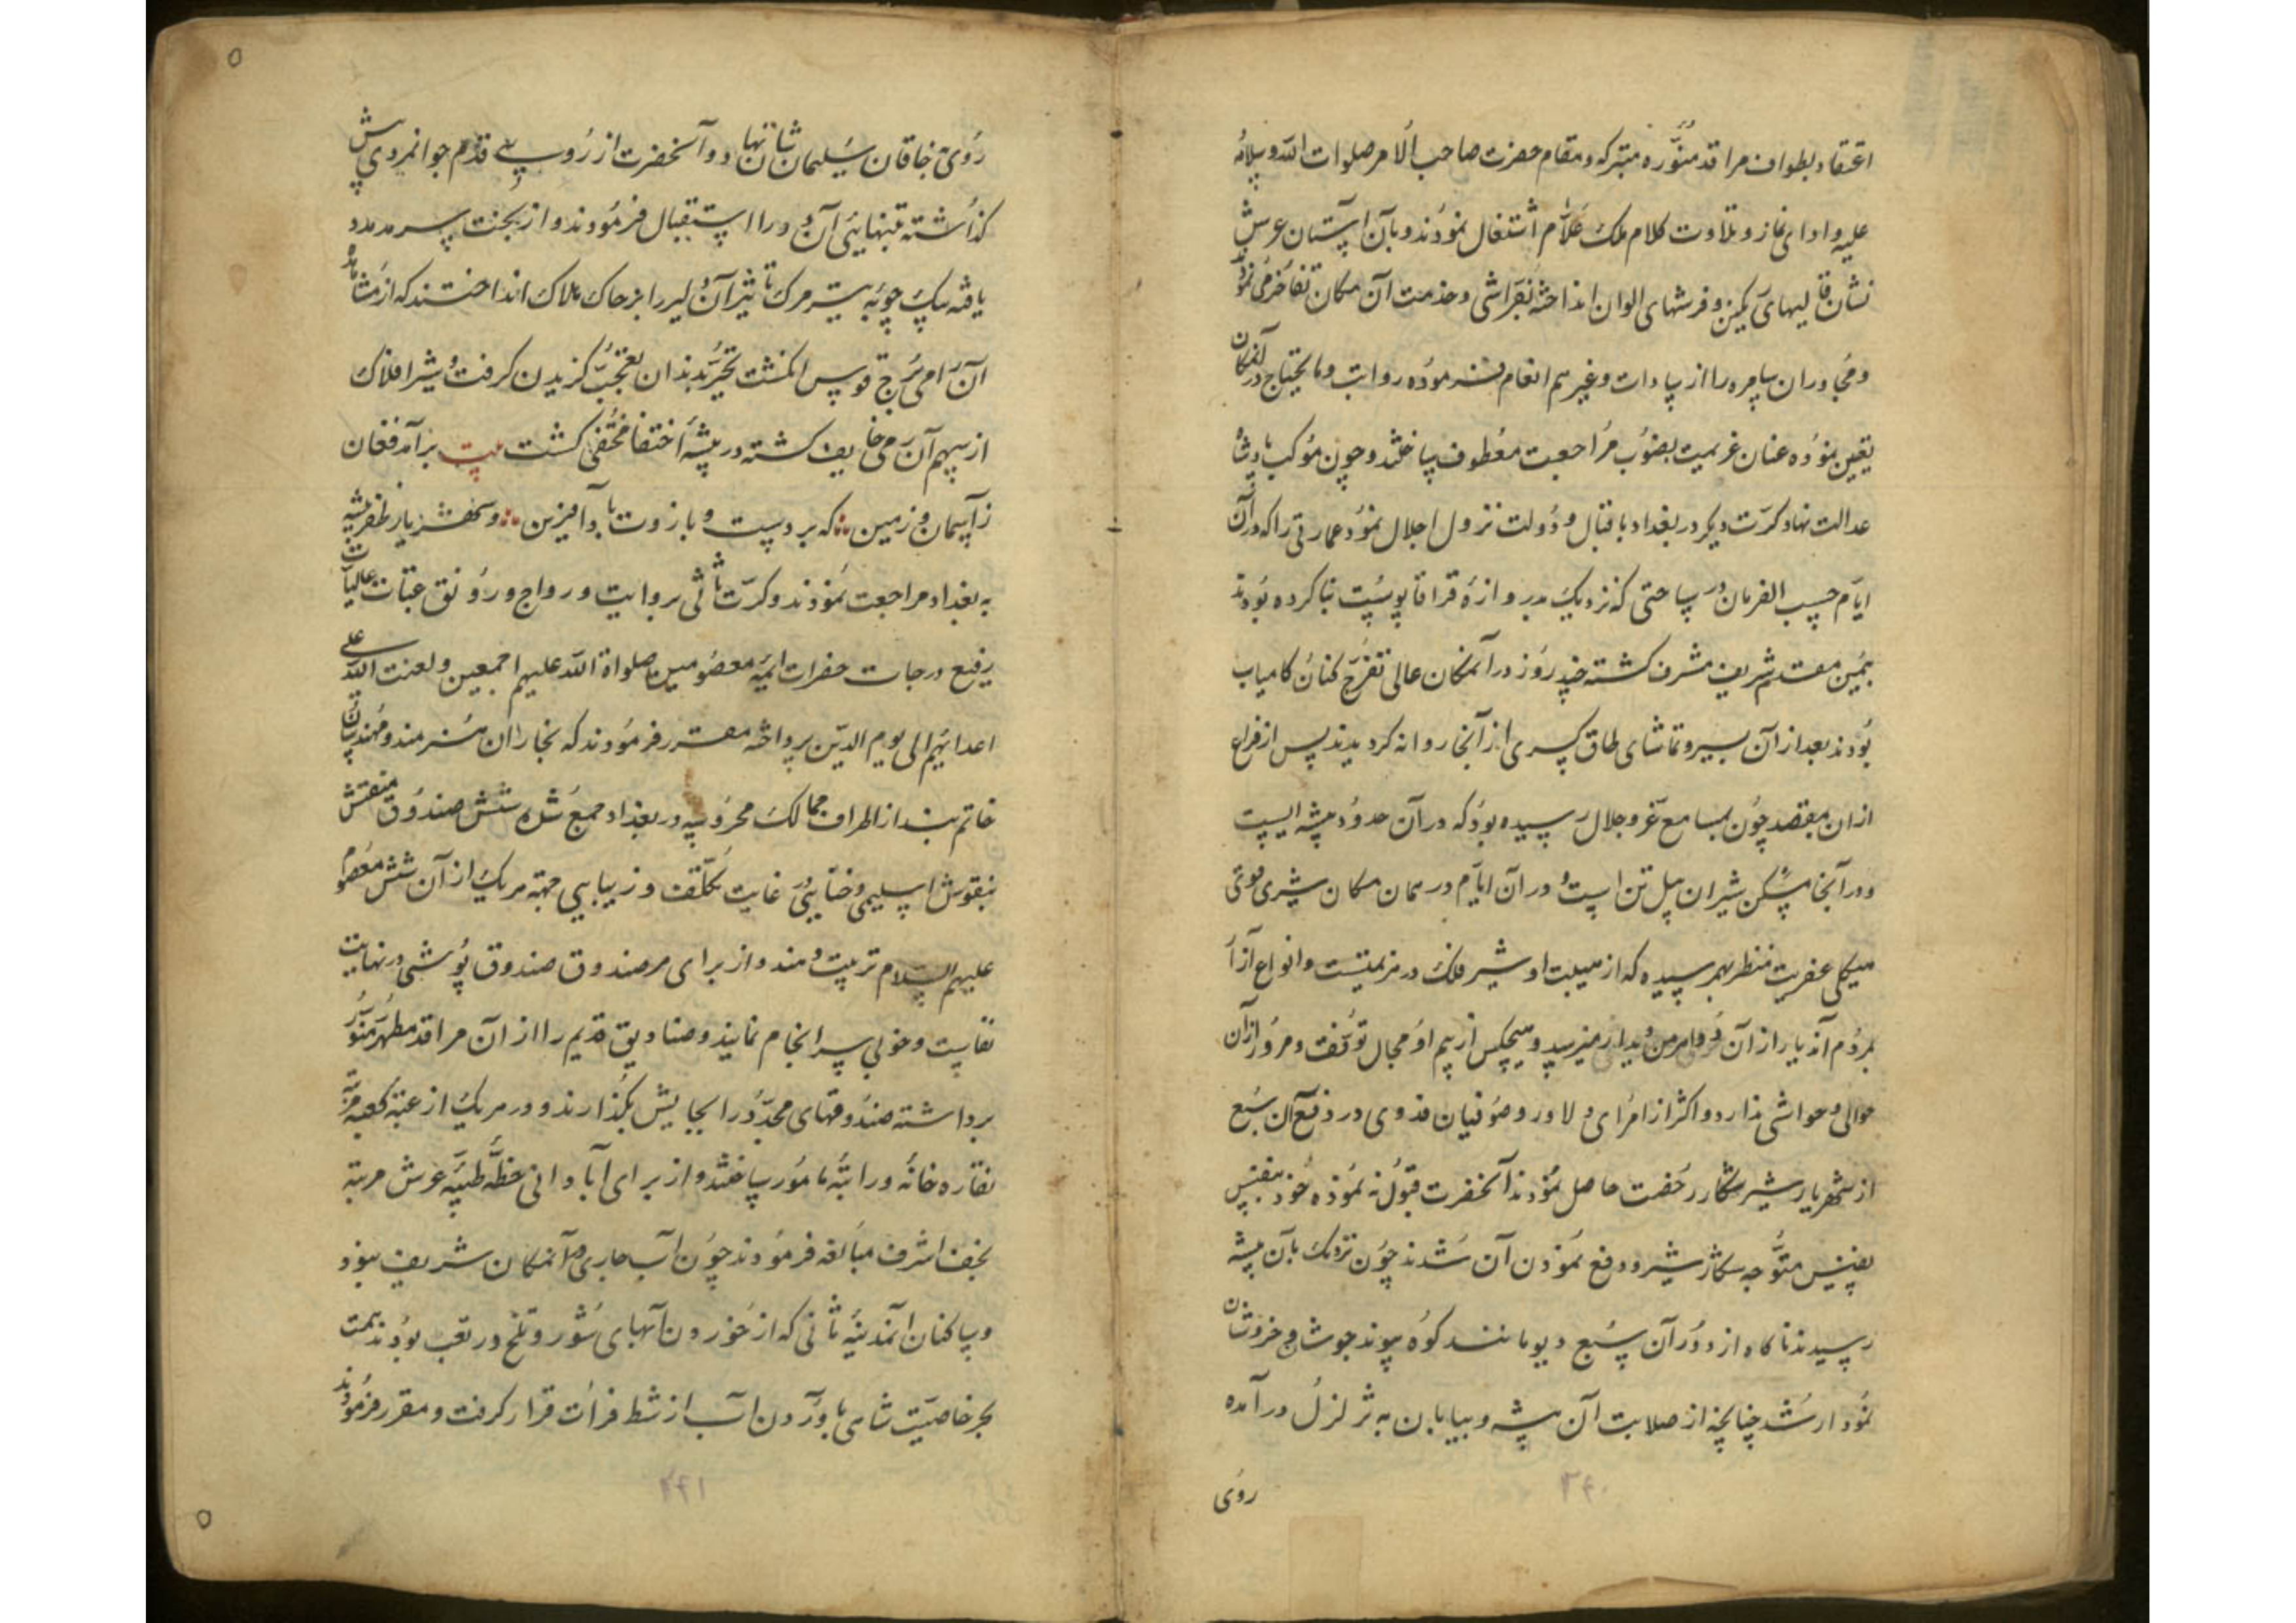 اعتقاد بطواف مراقد منوره متبرکه و مقام حضرت صاحب الامر صلوات الله و سلامه
علیه و ادای نماز و تلاوت کلام ملک علام اشتغال نمودند و بآن آستان عرش
نشان قالیهای رنگین و فرشهای الوان انداخته بفراشی و خدمت آن مکان تفاخر می نمودند
و مجاوران سامره را از سادات و غیرهم انعام فرموده رواتب و مایحتاج در آنمکان
تعیین نموده عنان عزیمت بصوب مراجعت معطوف ساختند و چون موکب پادشاه
عدالت نهاد کرت دیگر در بغداد باقبال و دولت نزول اجلال نمود عمارتی را که در آن
ایام حسب الفرمان در ساحتی که نزدیک بدروازه قراقاپوست بنا کرده بودند
بیمن مقدم شریف مشرف گشته چند روز در آنمکان عالی تفرج کنان کامیاب
بودند بعد از آن بسیر و تماشای طاق کسری از آنجا روانه گردیدند پس از فراغ
از ان مقصد چون بمسامع عز و جلال رسیده بود که در آن حدود بیشه ایست
و در آنجا مسکن شیران پیل تن است و در آن ایام در همان مکان شیری قوی
هیکلی عفریت منظر بهم رسیده که از هیبت او شیر فلک در هزیمتست و انواع آزار
بمردم آندیار از آن میرسد و هیچکس از بیم او مجال توقف و مرور از آن
حوالی و حواشی ندارد و اکثر از امرای دلاور و صوفیان فدوی در دفع آن سبع
از شهریار شیر شکار رخصت حاصل نمودند آنحضرت قبول نه نموده خود بنفس
نفیس متوجه شکار شیر و دفع نمودن آن شدند چون نزدیک بآن بیشه
رسیدند ناگاه از دور آن سبع دیو مانند کوه پیوند جوشان و خروشان
نمودار شد چنانچه از صلابت آن بیشه و بیابان به تزلزل در آمده
روی
۲۴۰
روی خاقان سلیمان شان نهاد و آنحضرت از روی قدم جوانمردی پیش
گذاشته بتنهائی آن دد را استقبال فرمودند و از بخت سرمد مدد
یافته بیک چوبه تیر مرک تاثیر آن دلیر را بر خاک هلاک انداختند که از مشاهده
آن رامی برج قوس انگشت تحیر بدندان تعجب گزیدن گرفت و شیر افلاک
از سهم آن رمی خایف گشته در بیشه اختفا مختفی گشت بیت برآمد فغان
ز آسمان و زمین که بر دست و بازوت باد آفرین و شهریار ظفر بیشه
به بغداد مراجعت نمودند و کرت ثانی برواتب و رواج و رونق عتبات عالیات
رفیع درجات حضرات ائمه معصومین صلواة الله علیهم اجمعین و لعنت الله علی
اعدائهم الی یوم الدین پرداخته مقرر فرمودند که نجاران هنرمند و مهندسان
خاتم بند از اطراف ممالک محروسه در بغداد جمع شده شش صندوق منقش
بنقوش اسلیمی و ختایی غایت تکلف و زیبایی جهة هریک از آن شش معصوم
علیهم السلام ترتیب دهند و از برای هر صندوق صندوق پوشی در نهایت
نفاست و خوبی سرانجام نمایند و صنادیق قدیم را از آن مراقد مطهر منور
برداشته صندوقهای مجدد را بجایش بگذارند و در هریک از عتبه کعبه مرتبه
نقاره خانه و راتبه مامور ساختند و از برای آبادانی خطه طیبه عرش مرتبه
نجف اشرف مبالغه فرمودند چون آب جاری در آنمکان شریف نبود
و ساکنان آنمدینه ثانی که از خوردن آبهای شور و تلخ در تعب بودند همت
بحر خاصیت شاهی بآوردن آب از شط فرات قرار گرفت و مقرر فرمودند
۲۴۱